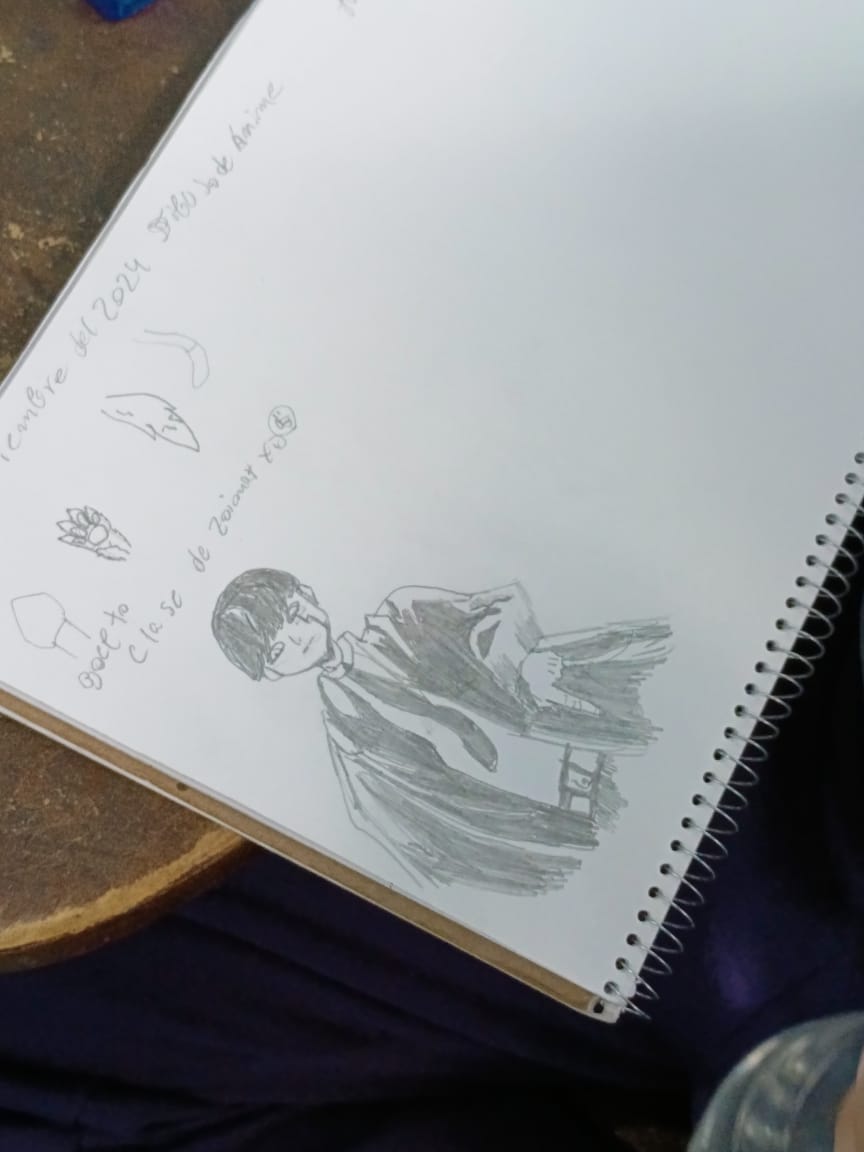 iembre del 2024 Dibujo de Anime
Boceto
Clase de